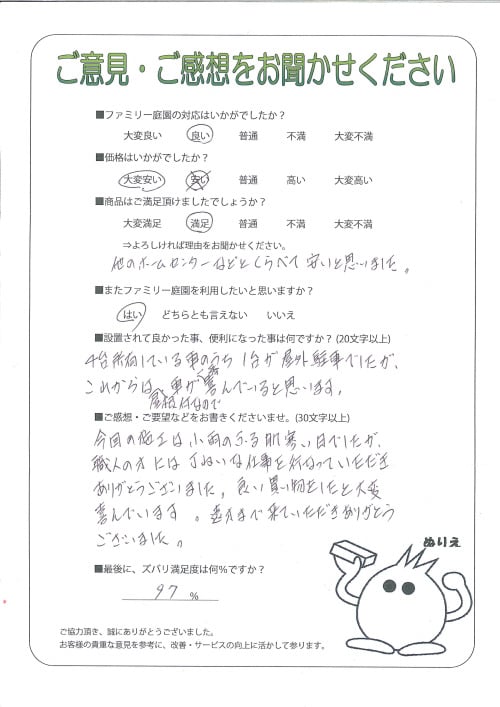 ご意見・ご感想をお聞かせください
■ファミリー庭園の対応はいかがでしたか?
大変良い 良い 普通 不満 大変不満
■価格はいかがでしたか?
大変安い 安い 普通 高い 大変高い
■商品はご満足頂けましたでしょうか?
大変満足 満足 普通 不満 大変不満
⇒よろしければ理由をお聞かせください。
他のホームセンターなどとくらべて安いと思いました。
■またファミリー庭園を利用したいと思いますか?
はい どちらとも言えない いいえ
■設置されて良かった事、便利になった事は何ですか? (20文字以上)
4台所有している車のうち1台が屋外駐車でしたが、
これからは、車が喜んでいると思います。
屋根付なので
■ご感想・ご要望などをお書きくださいませ。(30文字以上)
今回の施工は小雨のふる肌寒い日でしたが、
職人の方にはていねいな仕事を行なっていただき
ありがとうございました。良い買い物をしたと大変
喜んでいます。遠方まで来ていただきありがとう
ございました。
ぬりえ
■最後に、ズバリ満足度は何%ですか?
97 %
ご協力頂き、誠にありがとうございました。
お客様の貴重な意見を参考に、改善・サービスの向上に活かして参ります。